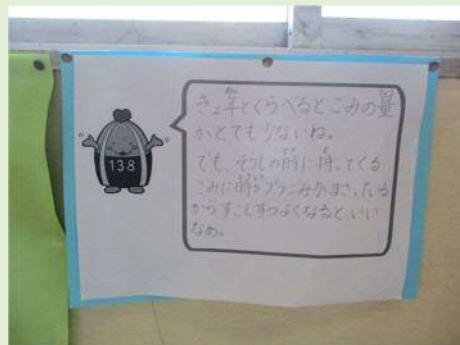 138
きょ年とくらべるとごみの量
がとてもりないね。
でも、そうじの前に持ってくる
ごみに時々プラごみがまざってる
からすこしずつよくなるといい
なぁ。